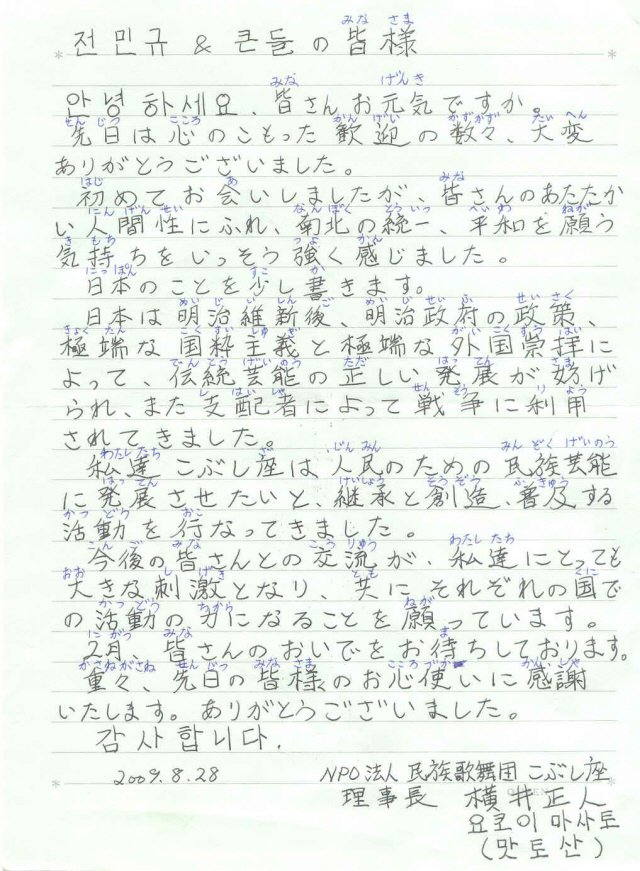 전민규 & 큰들の皆様
안녕하세요、皆さんお元気ですか。
先日は心のこもった歓迎の数々、大変
ありがとうございました。
初めてお会いしましたが、皆さんのあたたか
い人間性にふれ、南北の統一、平和を願う
気持ちをいっそう強く感じました。
日本のことを少し書きます。
日本は明治維新後、明治政府の政策、
極端な国粋主義と極端な外国崇拝に
よって、伝統芸能の正しい発展が妨げ
られ、また支配者によって戦争に利用
されてきました。
私達こぶし座は、人民のための民族芸能
に発展させたいと、継承と創造、普及する
活動を行なってきました。
今後の皆さんとの交流が、私達にとっても
大きな刺激となり、共にそれぞれの国で
の活動の力になることを願っています。
2月、皆さんのおいでをお待ちしております。
重々、先日の皆様のお心使いに感謝
いたします。ありがとうございました。
감사합니다.
2009.8.28 NPO法人 民族歌舞団 こぶし座
理事長 横井正人
요코이 마사토
(맛토산)